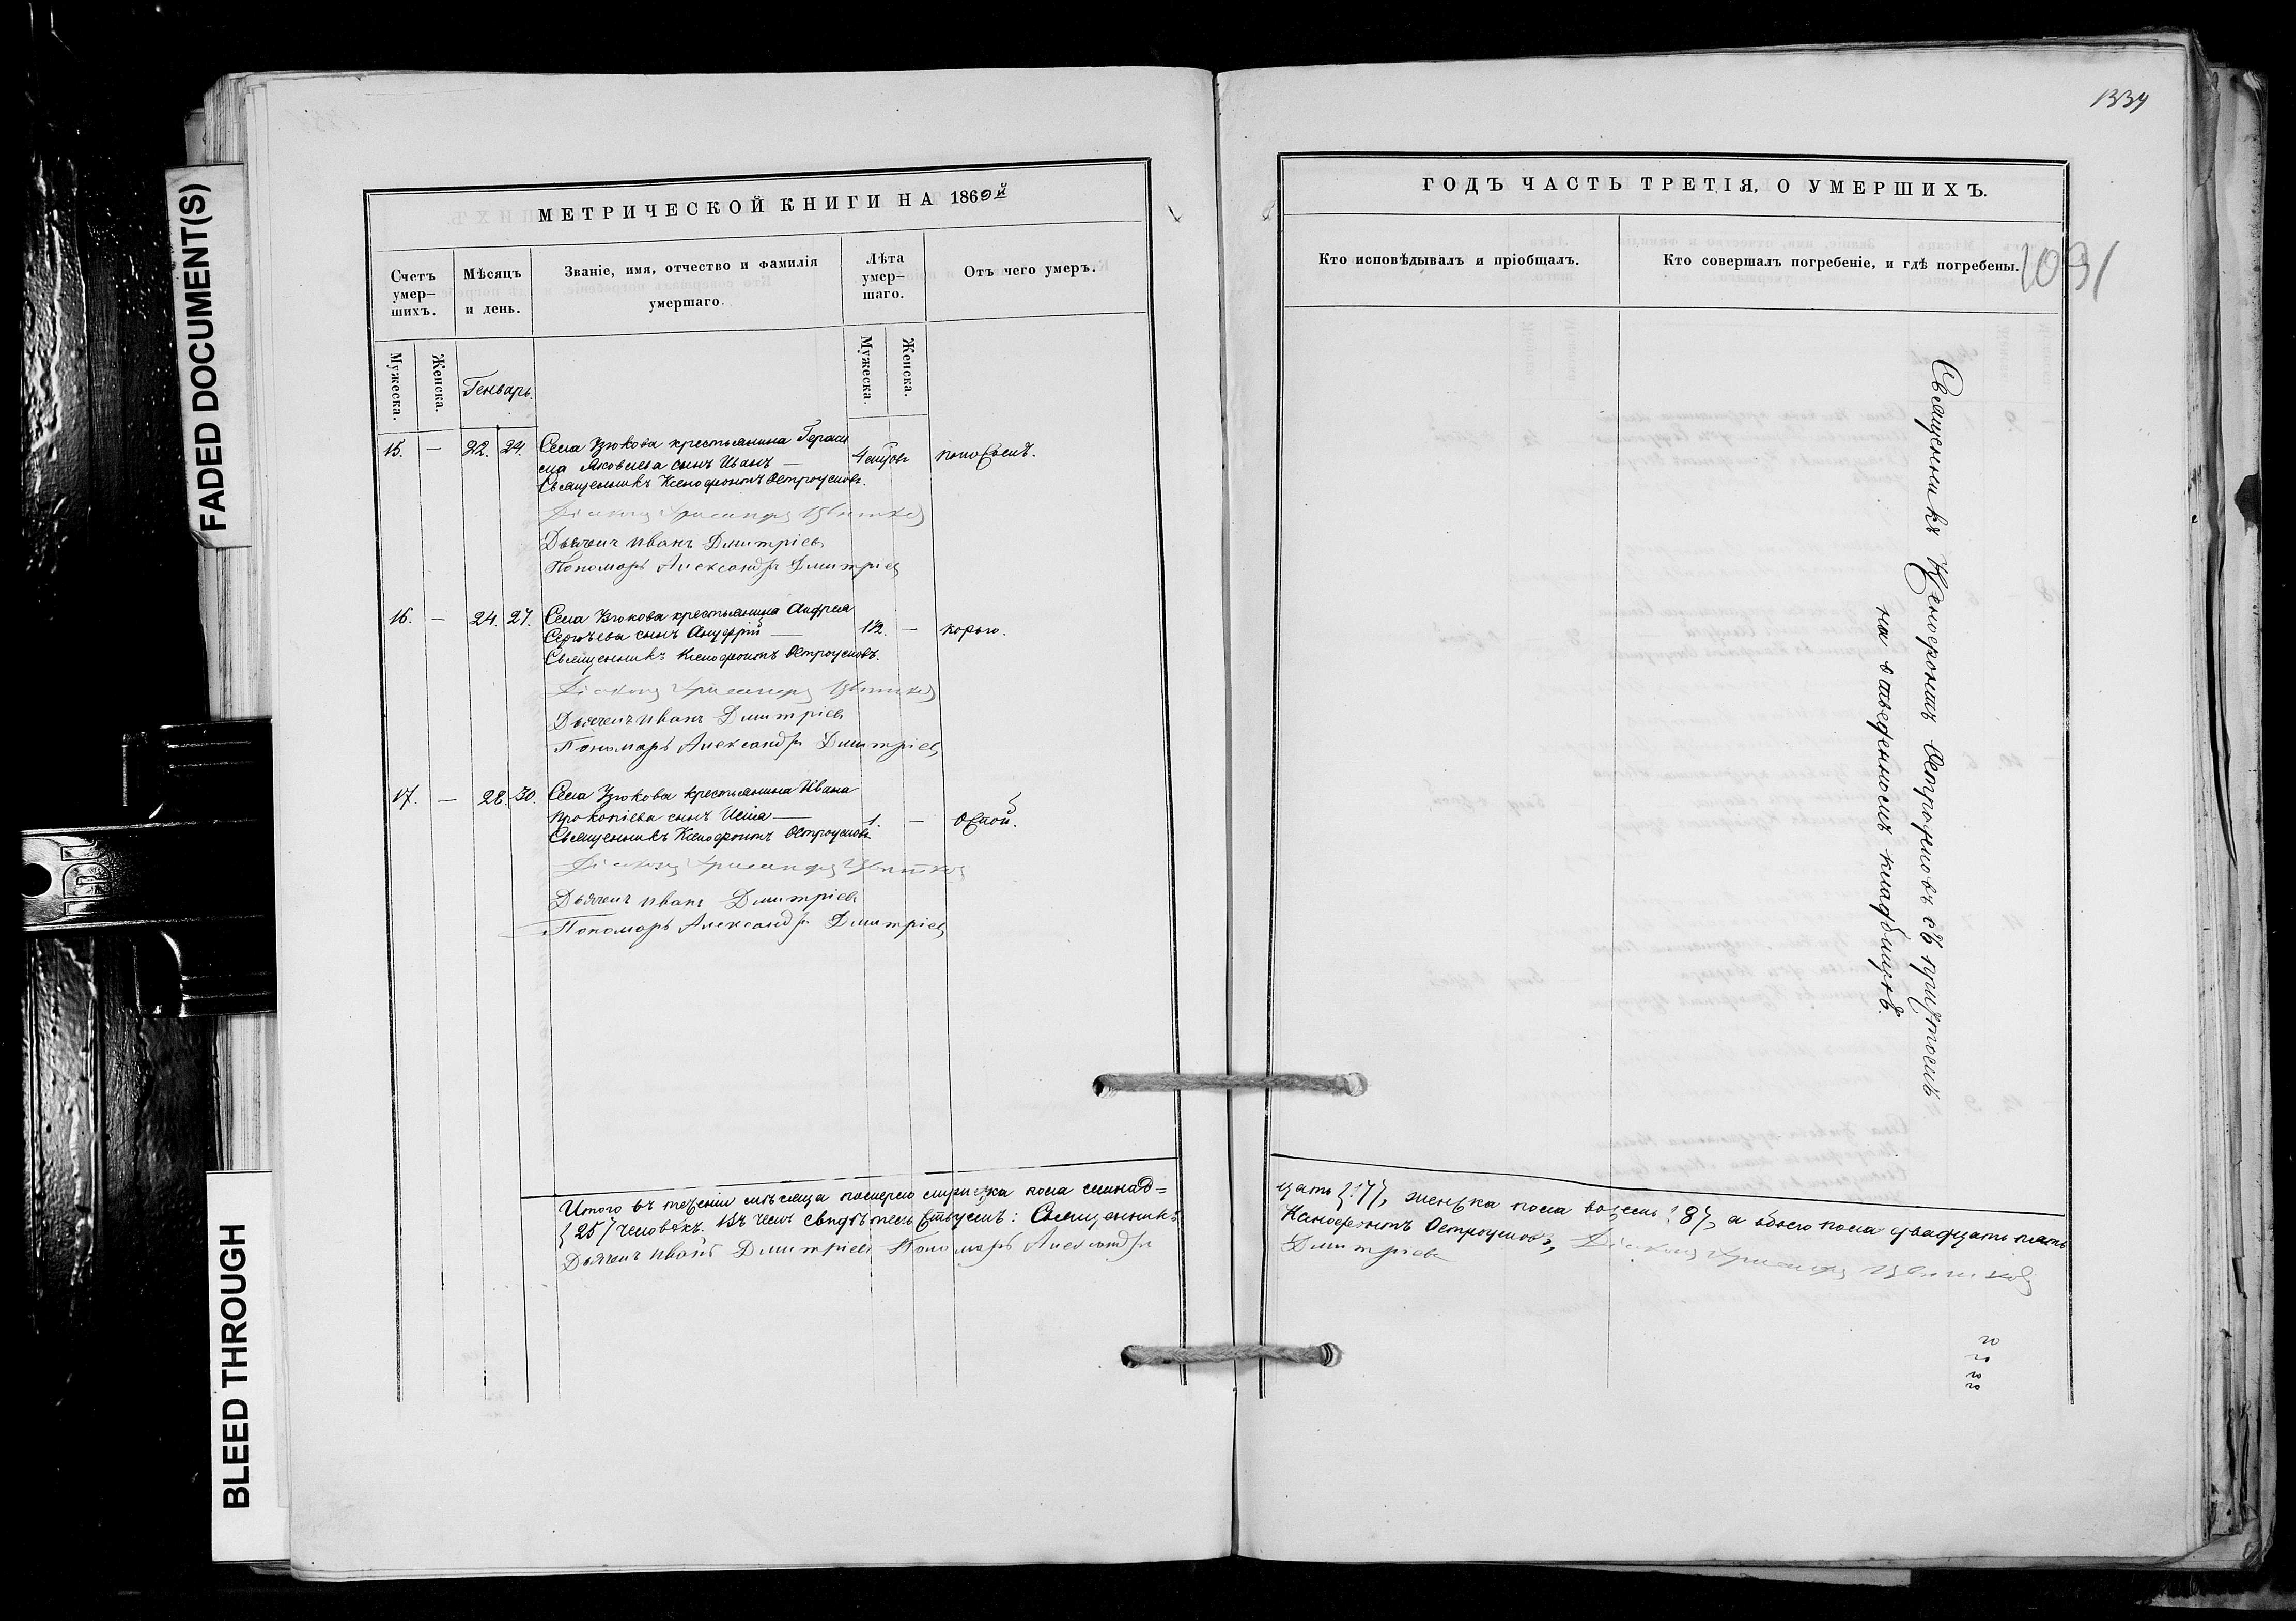 FADED DOCUMENT(S)
BLEED THROUGH
1334
1031
МЕТРИЧЕСКОЙ КНИГИ НА 1869й
Счетъ умер-шихъ.
Мѣсяцъ и день.
Званіе, имя, отчество и фамилія умершаго.
Лѣта умер-шаго.
Отъ чего умеръ.
Мужеска.
Женска.
Генварь.
Мужеска.
Женска.
15. — 22. 24. Села Узюкова крестьянина Гераси
ма Яковлева сынъ Иванъ — поносомъ.
Священникъ Ксенофонтъ Остроумовъ.
Діаконъ Хрисанфъ Цвѣтковъ
Дьячекъ Иванъ Дмитріевъ
Пономарь Александръ Дмитріевъ
16. — 24. 27. Села Узюкова крестьянина Андрея
Сергѣева сынъ — 1½. — корью.
Священникъ Ксенофонтъ Остроумовъ.
Діаконъ Хрисанфъ Цвѣтковъ
Дьячекъ Иванъ Дмитріевъ
Пономарь Александръ Дмитріевъ
17. — 28. 30. Села Узюкова крестьянина Ивана
Прокопіева сынъ — 1. — оспой.
Священникъ Ксенофонтъ Остроумовъ.
Діаконъ Хрисанфъ Цвѣтковъ
Дьячекъ Иванъ Дмитріевъ
Пономарь Александръ Дмитріевъ
Итого въ теченіи мѣсяца померло мужеска пола семнад=
{25} человѣкъ. Въ чемъ свидѣтельствуемъ: Священникъ
Дьячекъ Иванъ Дмитріевъ Пономарь Александръ
ГОДЪ ЧАСТЬ ТРЕТІЯ, О УМЕРШИХЪ.
Кто исповѣдывалъ и пріобщалъ.
Кто совершалъ погребеніе, и гдѣ погребены.
Священникъ Ксенофонтъ Остроумовъ съ причтомъ
на отведенномъ кладбищѣ.
цать {17}, женска пола восемь {8}, а обоего пола двадцать пять
Ксенофонтъ Остроумовъ, Діаконъ Хрисанфъ Цвѣтковъ
Дмитріевъ